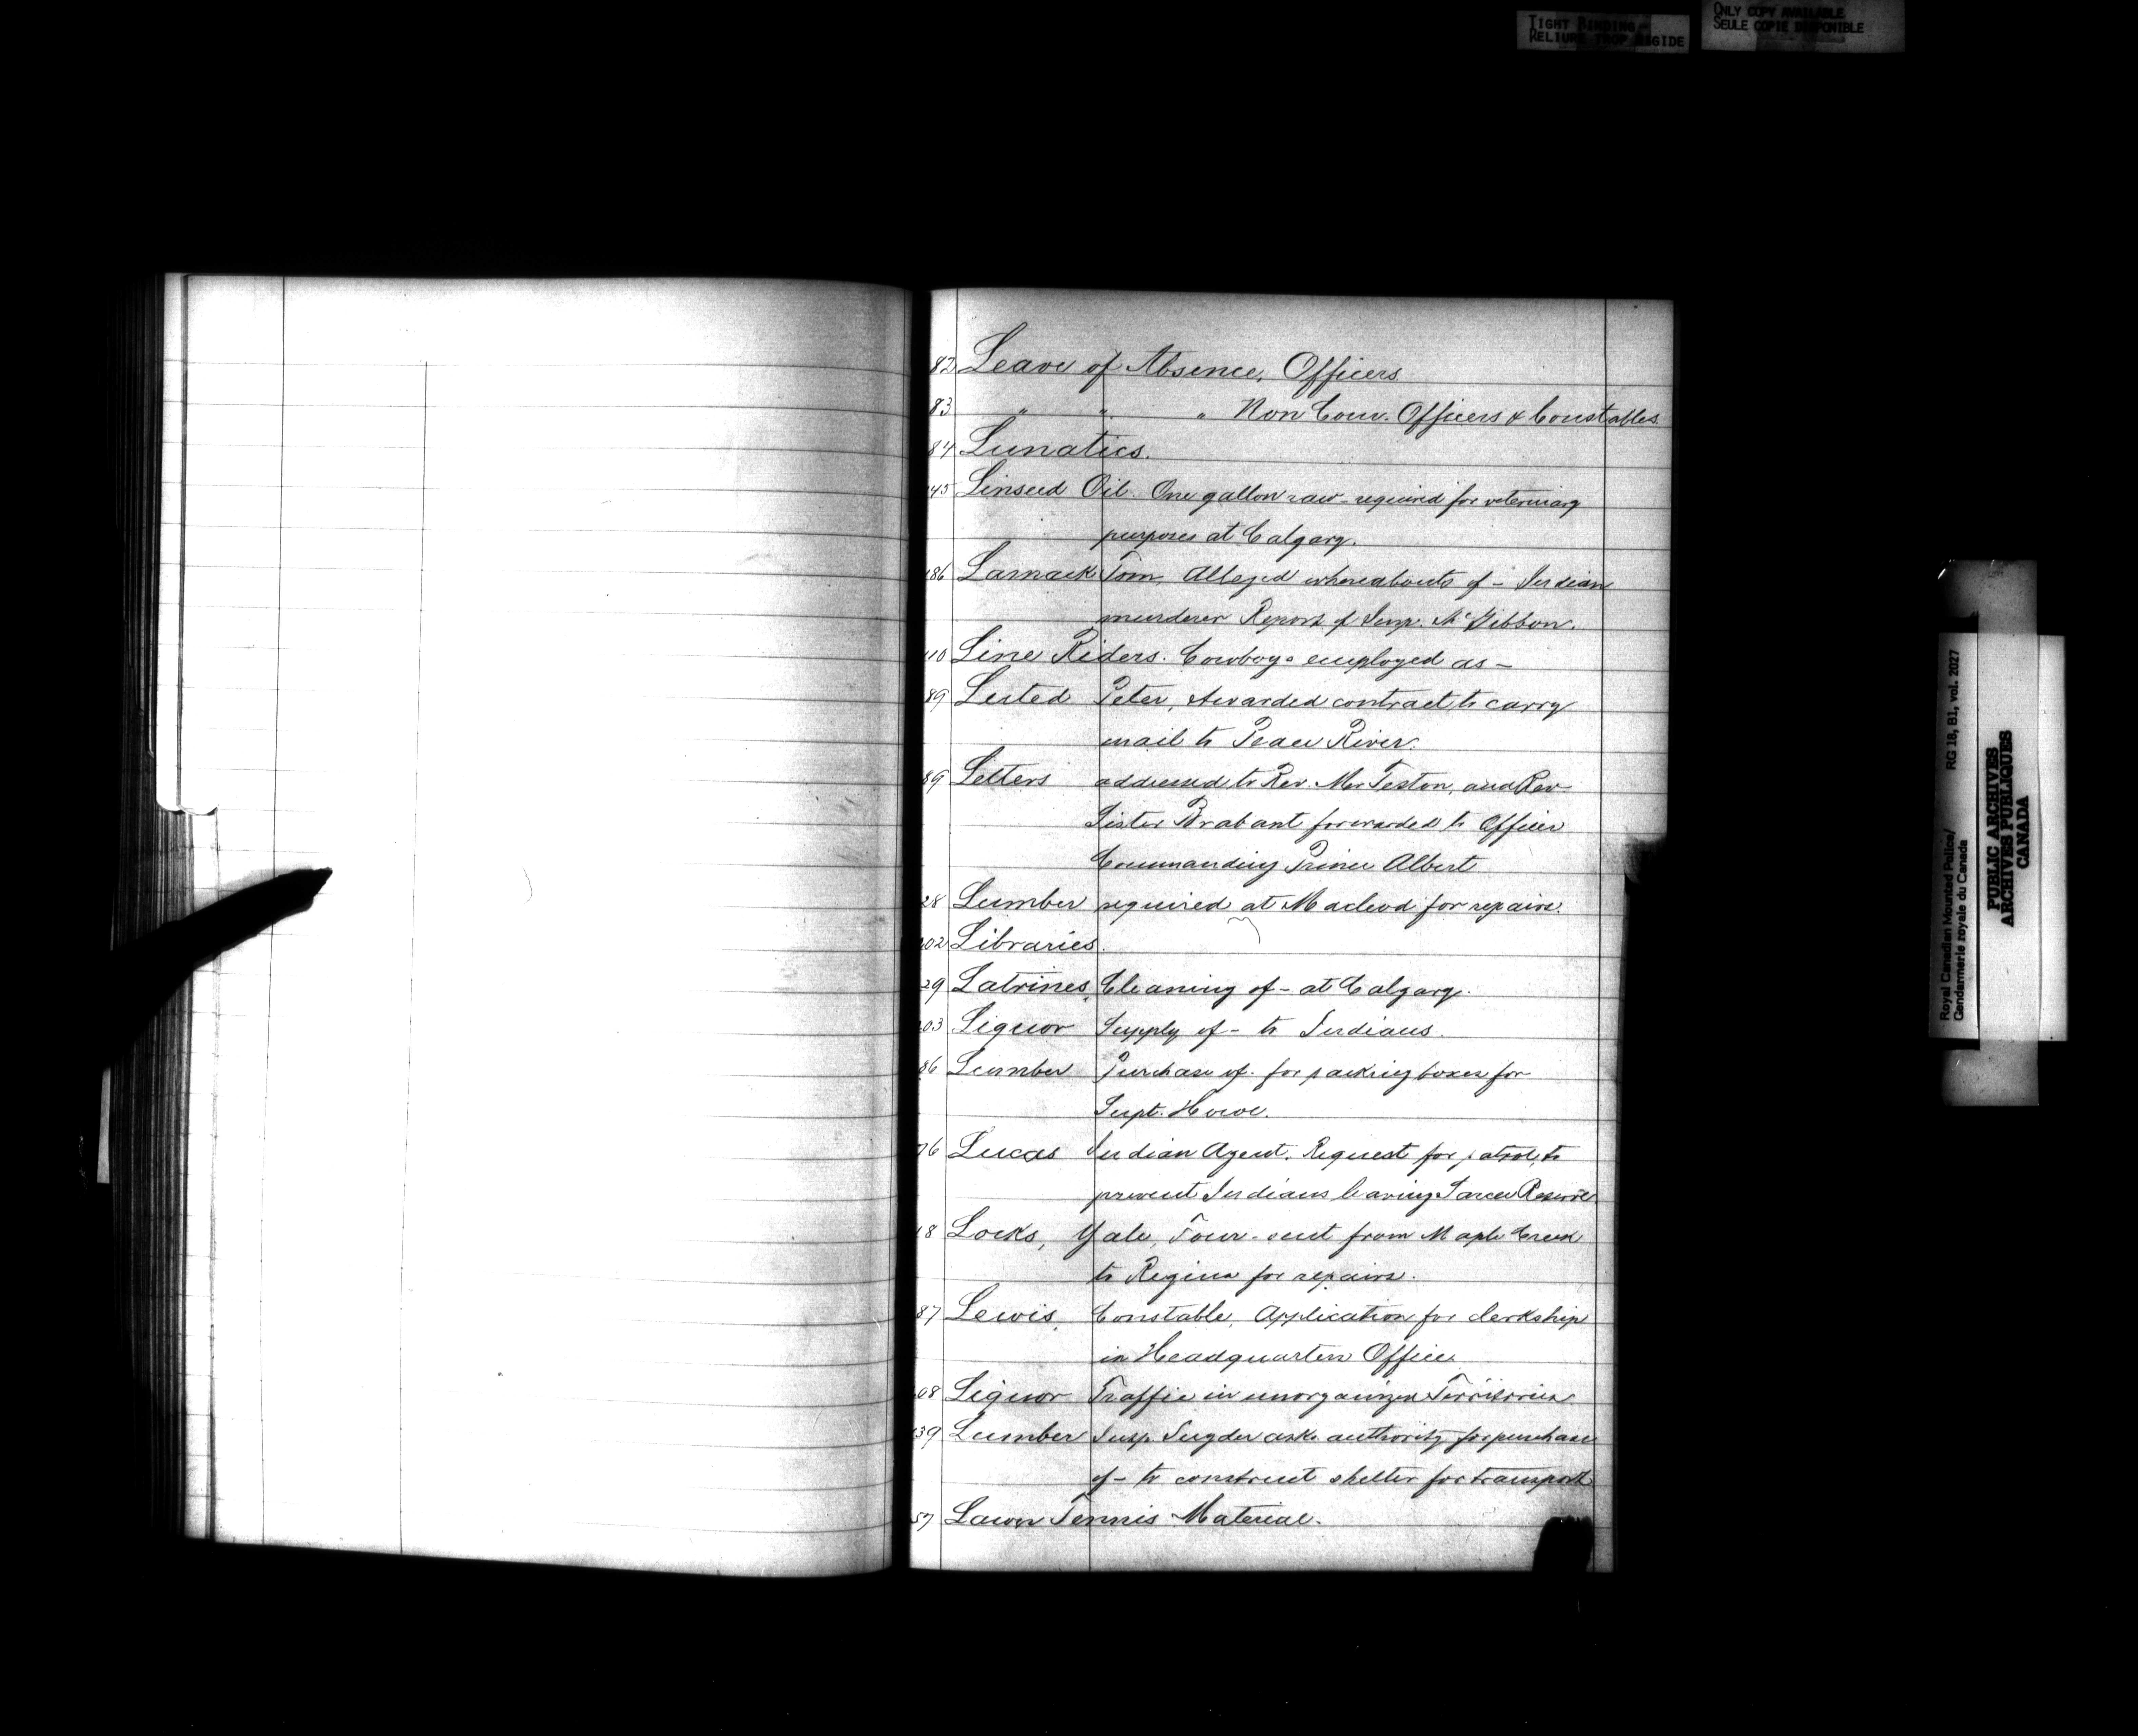 TIGHT BINDING
RELIURE TROP RIGIDE
ONLY COPY AVAILABLE
SEULE COPIE DISPONIBLE
82 Leave of Absence, Officers.
83 " " " Non Com. Officers & Constables.
84 Lunatics.
45 Linseed Oil. One gallon raw - required for veterinary
purposes at Calgary.
86 Larnack Tom, Alleged whereabouts of - Indian
murderer Report of Insp. McGibbon.
10 Line Riders. Cowboys employed as -
89 Lusted Peter, Awarded contract to carry
mail to Peace River.
89 Letters addressed to Rev. Mr Teston, and Rev
Sister Brabant forwarded to Officer
Commanding Prince Albert
28 Lumber required at Macleod for repairs.
02 Libraries.
29 Latrines, Cleaning of - at Calgary.
03 Liquor Supply of - to Indians.
86 Lumber Purchase of - for packing boxes for
Supt. Howe.
76 Lucas Indian Agent. Request for patrol, to
prevent Indians leaving Sarcee Reserve
18 Locks, Yale, Four - sent from Maple Creek
to Regina for repairs.
87 Lewis, Constable, Application for clerkship
in Headquarters Office.
08 Liquor Traffic in unorganized Territories.
39 Lumber Insp. Snyder asks authority for purchase
of - to construct shelter for transport
57 Lawn Tennis Material.
Royal Canadian Mounted Police/
Gendarmerie royale du Canada
RG 18, B1, vol. 2027
PUBLIC ARCHIVES
ARCHIVES PUBLIQUES
CANADA